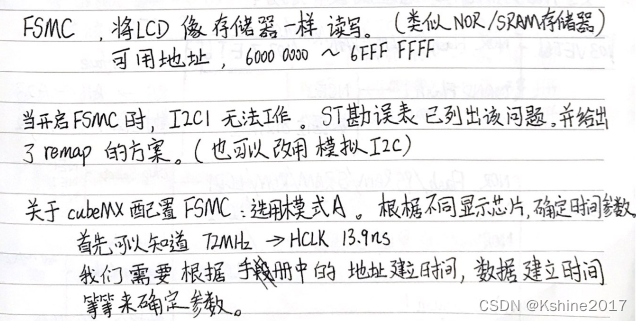 FSMC ，将LCD 像存储器一样 读写。（类似NOR/SRAM存储器）
可用地址，6000 0000 ~ 6FFF FFFF
当开启FSMC时，I2C1 无法工作。ST勘误表 已列出该问题，并给出
了 remap 的方案。（也可以改用 模拟I2C）
关于 cubeMX 配置 FSMC：选用模式A。根据不同显示芯片，确定时间参数。
首先可以知道 72MHz → HCLK 13.9ns
我们需要根据手册中的 地址建立时间，数据建立时间
等等来确定参数。
CSDN @Kshine2017